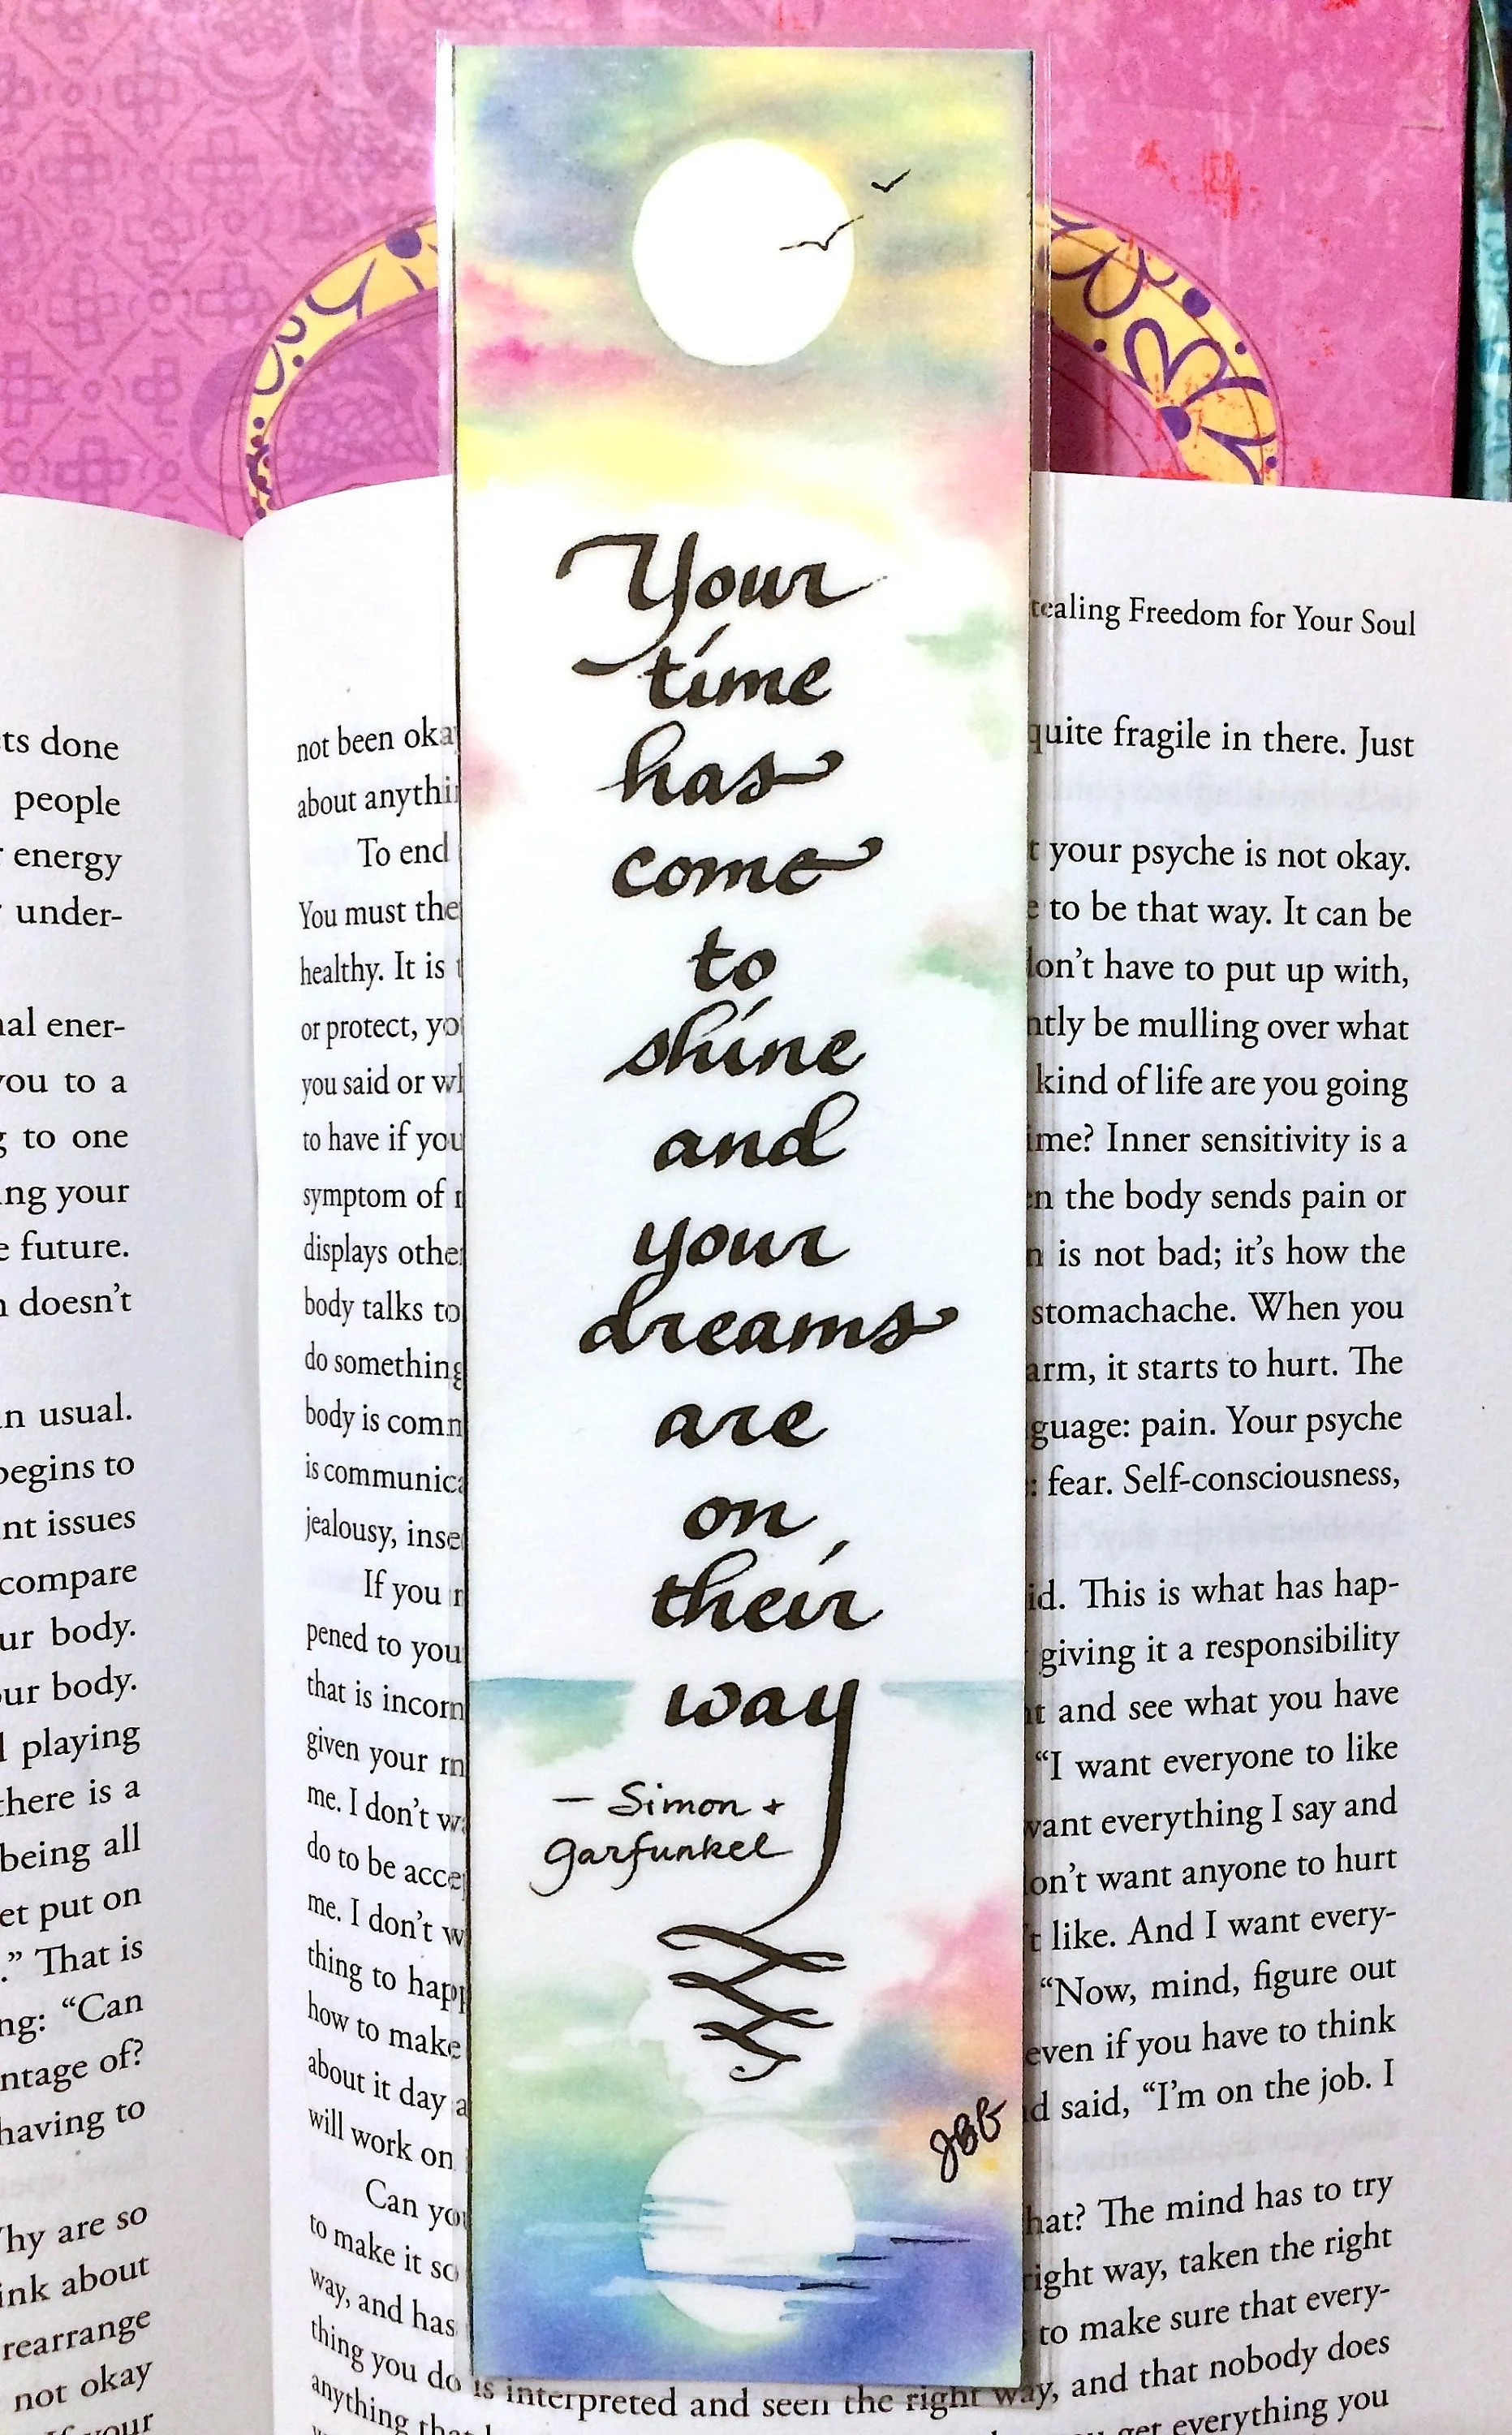 Your
time
has
come
to
shine
and
your
dreams
are
on
their
way
— Simon +
Garfunkel
JBB
ts done
people
energy
under-
ener-
to a
to one
your
future.
doesn't
usual.
begins to
issues
compare
body.
body.
playing
there is a
being all
put on
.” That is
“Can
of?
having to
are so
about
rearrange
not okay
your
Freedom for Your Soul
not been
quite fragile in there. Just
about
To end
your psyche is not okay.
You must
to be that way. It can be
healthy. It is
have to put up with,
or protect,
be mulling over what
you said or
kind of life are you going
to have if you
Inner sensitivity is a
symptom of
the body sends pain or
displays
is not bad; it's how the
body talks to
stomachache. When you
do something
it starts to hurt. The
body is
pain. Your psyche
is
fear. Self-consciousness,
jealousy,
If you
This is what has hap-
pened to you
giving it a responsibility
that is
and see what you have
given your
“I want everyone to like
me. I don't
everything I say and
do to be
want anyone to hurt
me. I don't
like. And I want every-
thing to
“Now, mind, figure out
how to make
even if you have to think
about it day
said, “I'm on the job. I
will work on
Can
The mind has to try
to make it
right way, taken the right
way, and has
to make sure that every-
thing you do is interpreted and seen the right way, and that nobody does
anything
get everything you